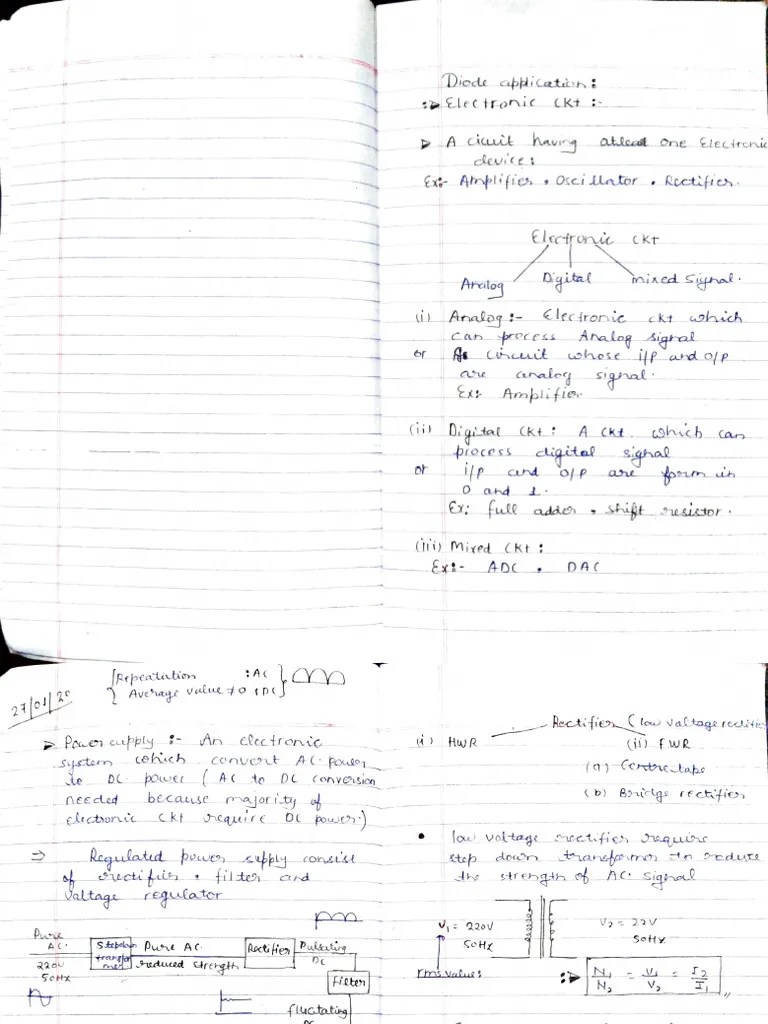 Diode application:
Electronic CKt :-
A cicuit having atleast one Electronic
device:
Ex:- Amplifier , Oscillator , Rectifier.
Electronic CKt
Analog Digital mixed Signal.
(i) Analog :- Electronic CKt which
can process Analog signal
or A circuit whose i/p and o/p
are analog signal.
Ex: Amplifier
(ii) Digital CKt : A CKt which can
process digital signal
or i/p and o/p are form in
0 and 1.
Ex: full adder , shift resistor.
(iii) Mixed CKt :
Ex:- ADC , DAC
27/01/20
Repeatation : AC
Average value ≠ 0 : DC
Power supply :- An electronic
system which convert AC power
to DC power ( AC to DC conversion
needed because majority of
electronic CKt require DC power.)
⇒ Regulated power supply consist
of rectifier , filter and
voltage regulator
Pure
AC.
220V
50HZ
Stepdown
transfor
mer
Pure AC.
reduced strength
Rectifier
Pulsating
DC
Filter
fluctating
Rectifier (low valtage rectifier
(i) HWR (ii) FWR
(a) Centre tape
(b) Bridge rectifier
• low voltage rectifier require
step down transformer to reduce
the strength of AC signal
V1 = 220V
50HX
rms value:
V2 = 22V
50HX
N1/N2 = V1/V2 = I2/I1